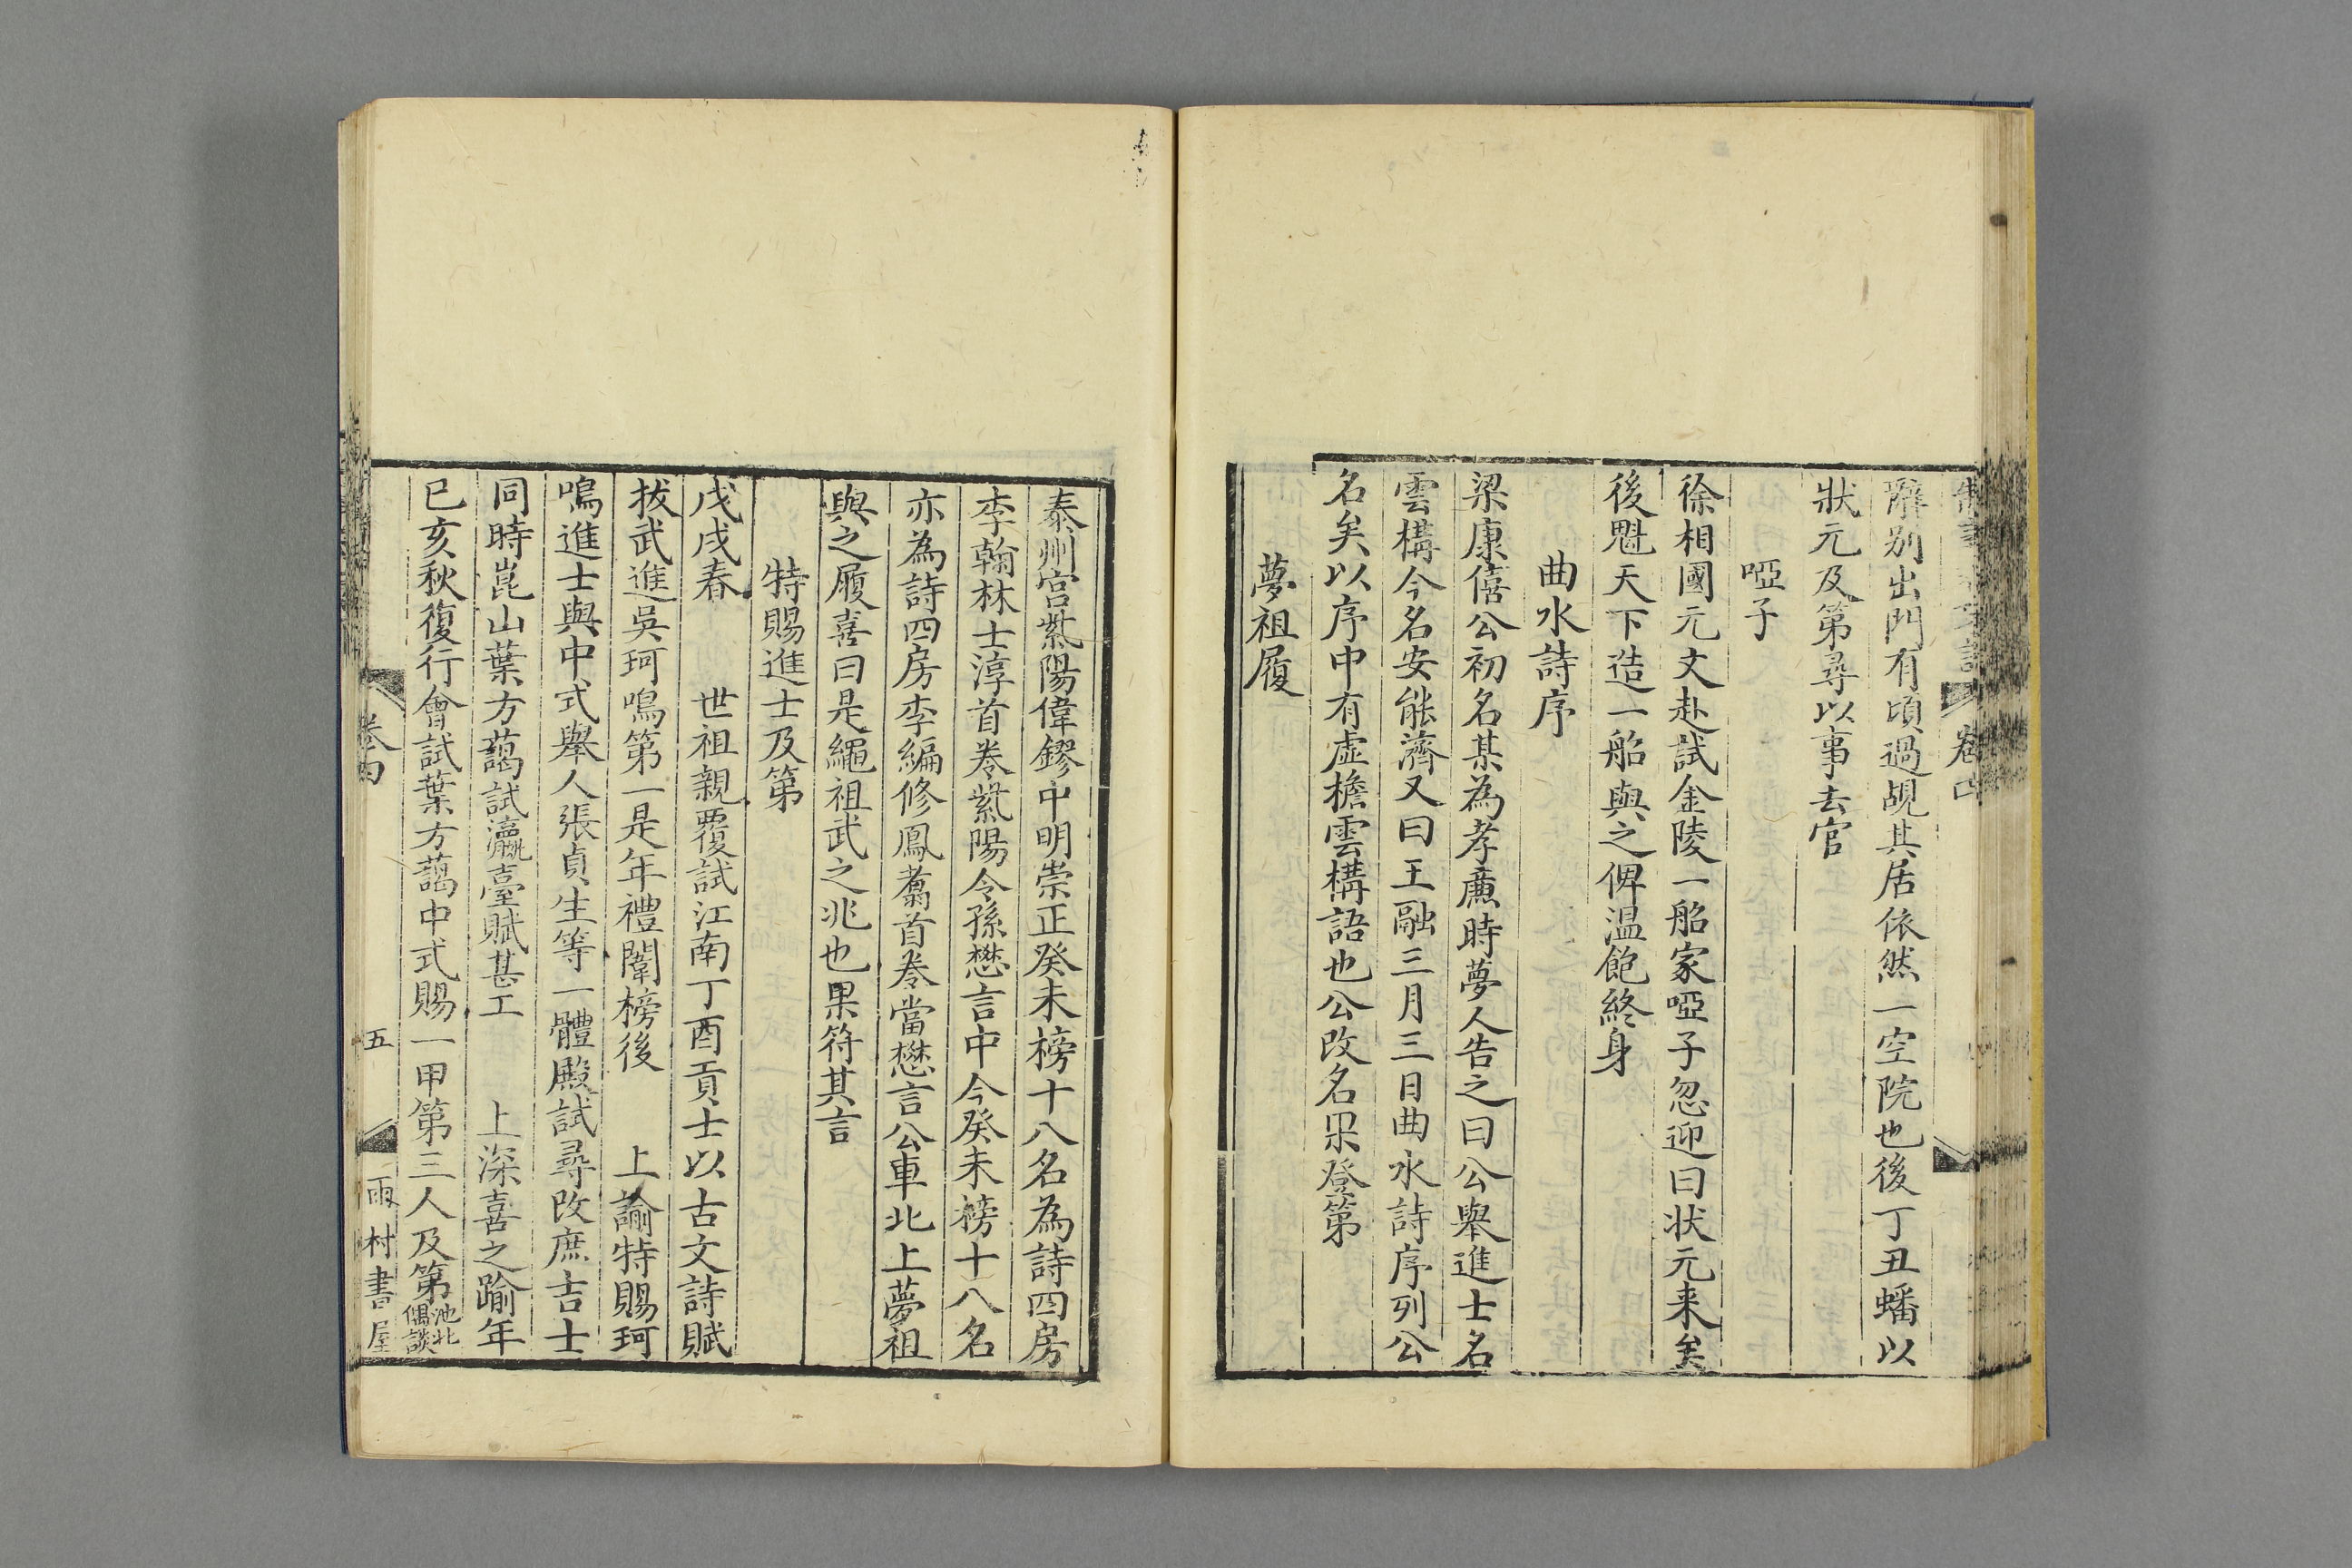 辭别出門有頃過覘其居依然一空院也後丁丑蟠以
狀元及第尋以事去官
啞子
徐相國元文赴試金陵一船家啞子忽迎曰状元来矣
後魁天下造一船與之俾温飽終身
曲水詩序
梁康僖公初名某為孝廉時夢人告之曰公舉進士名
雲構今名安能濟又曰王融三月三日曲水詩序列公
名矣以序中有虛檐雲構語也公改名果登第
夢祖履
卷四
泰州宫紫陽偉鏐中明崇正癸未榜十八名為詩四房
李翰林士淳首卷紫陽令孫懋言中今癸未榜十八名
亦為詩四房李編修鳳翥首卷當懋言公車北上夢祖
與之履喜曰是繩祖武之兆也果符其言
特賜進士及第
戊戌春 世祖親覆試江南丁酉貢士以古文詩賦
拔武進吳珂鳴第一是年禮闈榜後 上諭特賜珂
鳴進士與中式舉人張貞生等一體殿試尋改庶吉士
同時崑山葉方藹試瀛臺賦甚工 上深喜之踰年
已亥秋復行會試葉方藹中式賜一甲第三人及第池北偶談
卷四 五 雨村書屋